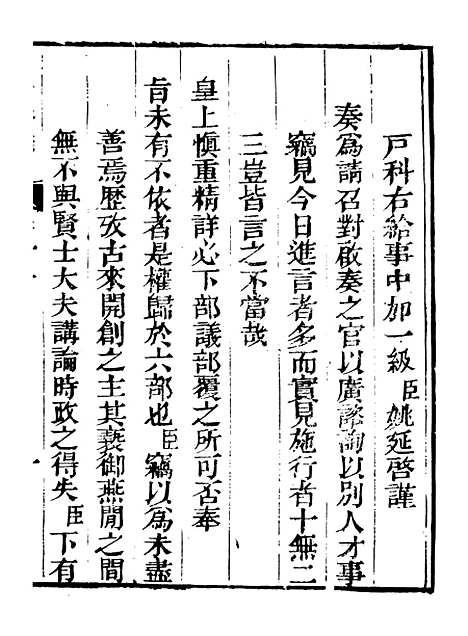 戸科右給事中加一級臣姚延啓謹
奏爲請召對啟奏之官以廣諮詢以別人才事
竊見今日進言者多而實見施行者十無二
三豈皆言之不當哉
皇上愼重精詳必下部議部覆之所可否奉
旨未有不依者是權歸於六部也臣竊以爲未盡
善焉歷攷古來開創之主其褻御燕閒之間
無不與賢士大夫講論時政之得失臣下有